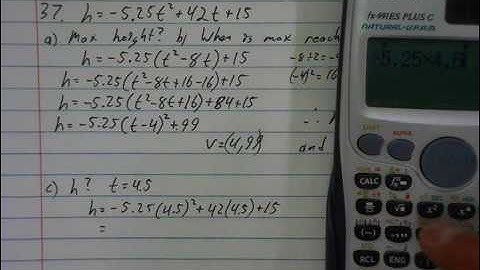 37. h = -5.25t²+42t+15
a) Max height? b) When is max reach
h = -5.25(t²-8t)+15
-8÷2=-4
h = -5.25(t²-8t+16-16)+15
(-4)²=16
h = -5.25(t²-8t+16)+84+15
h = -5.25(t-4)²+99
V=(4,99)
and
c) h? t=4.5
h = -5.25(4.5)²+42(4.5)+15
=
fx-991ES PLUS C
NATURAL-V.P.A.M.
-5.25×4.5
SHIFT
ALPHA
CALC
RCL
ENG
(